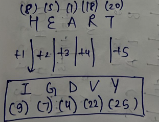 (8) (5) (1) (18) (20)
H E A R T
+1 +2 +3 +4 +5
I G D V Y
(9) (7) (4) (22) (25)